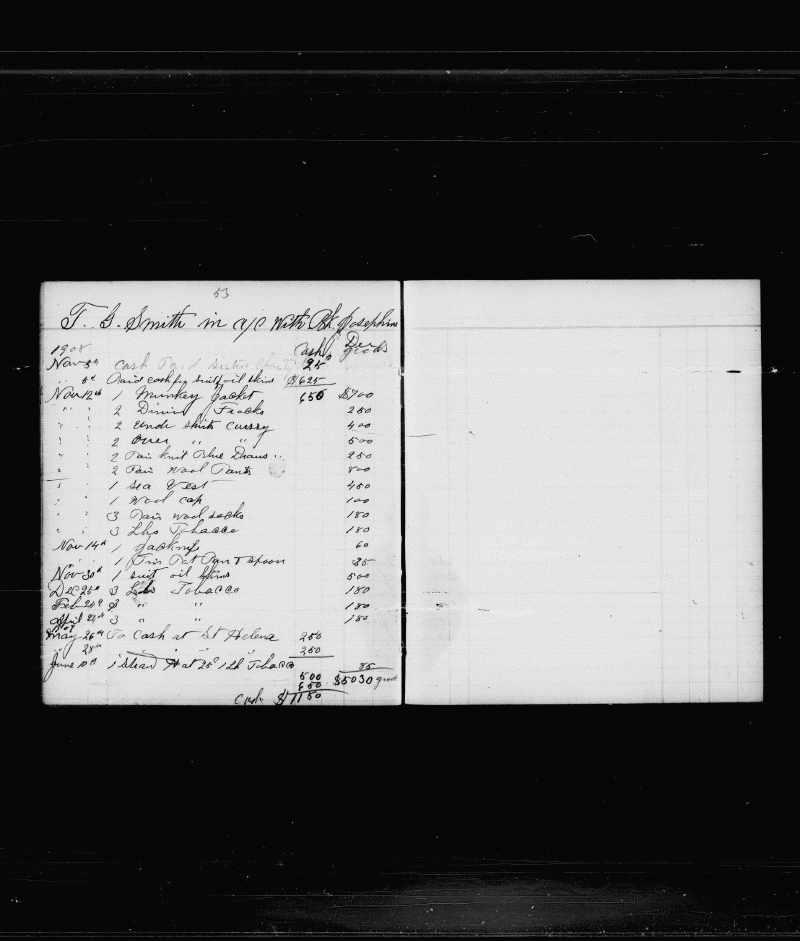 53
T. G. Smith in a/c with Bk Josephine
1908 Cash Goods
Nov 5th Cash Paid Sister 25
" 5th Paid cash for suit oil skins $625
Nov 12th 1 Munkey Jacket 650 $700
" " 2 Dinim Frocks 250
" " 2 Undr shirts 400
" " 2 Over " " 500
" " 2 Pair knit Blue 250
" " 2 Pair wool Pants 800
" " 1 Sea Vest 450
" " 1 Wool cap 100
" " 3 Pair wool socks 180
" " 3 Lbs Tobacco 180
Nov 14th 1 Jacknif 60
" " 1 Tin Pot Pan & spoon 35
Nov 30th 1 suit oil skins 500
Dec 25th 3 Lbs Tobacco 180
Feb 3 " " 180
April 3 " " 180
May 26th To Cash at St Helena 250
" 28th " " " 250
June 10th 1 Straw Hat 25c 1 Lb Tobacco 85
500 $5030 good
650
Cash $1150